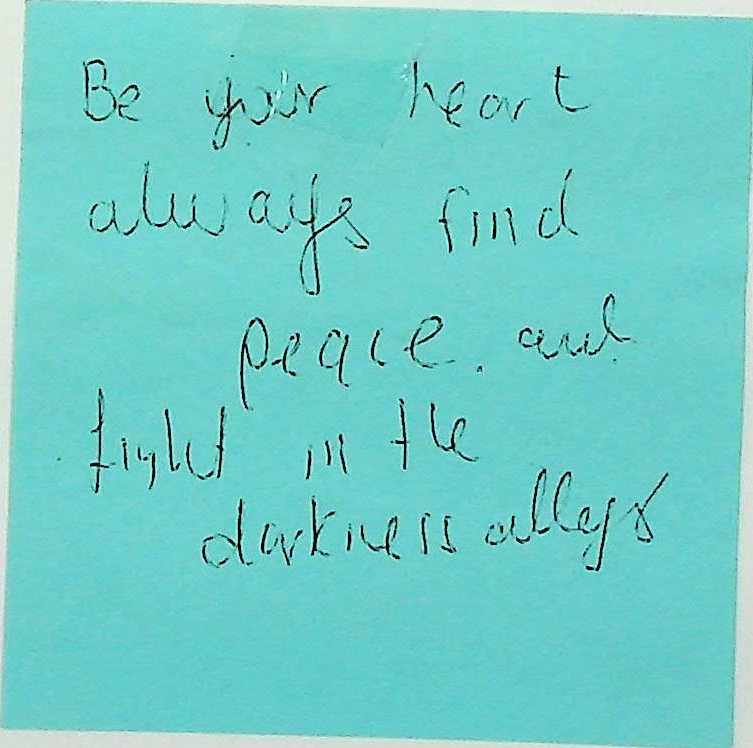 Be your heart
always find
peace. and
fight in the
darkness alleys